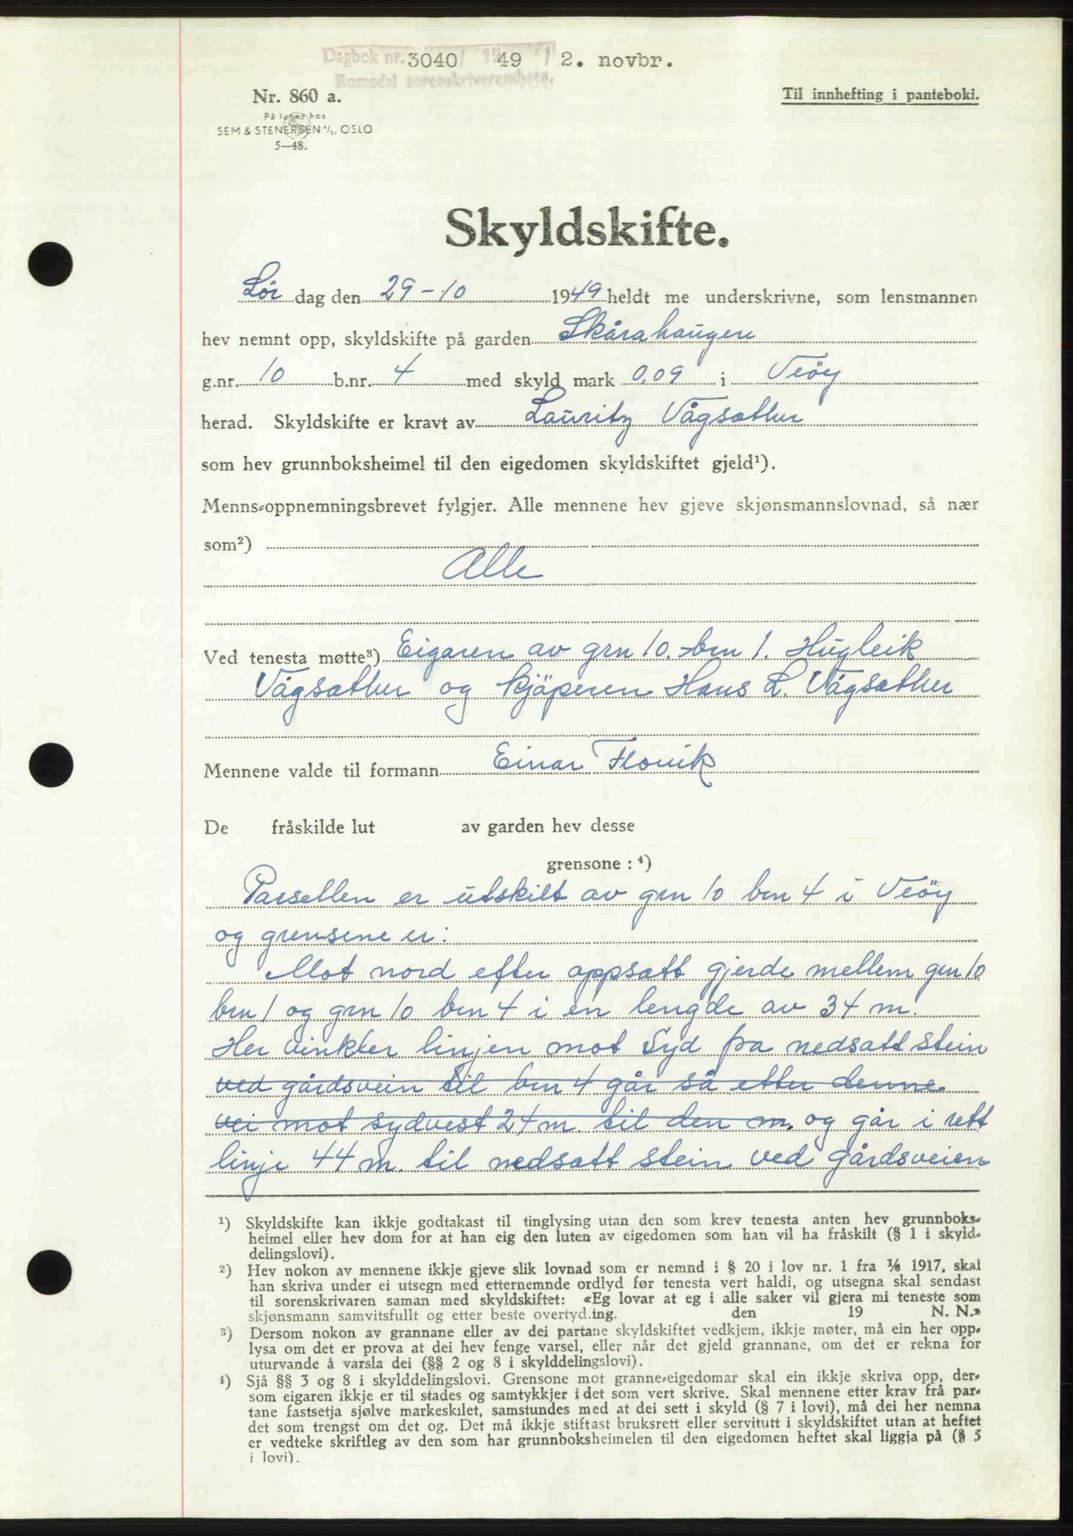 Dagbok nr. 3040 1949 2. novbr.
Romsdal sorenskriverembete.
Nr. 860 a.
Til innhefting i panteboki.
På lager hos
SEM & STENERSEN A/S, OSLO
5—48.
Skyldskifte.
Lør dag den 29-10 1949 heldt me underskrivne, som lensmannen
hev nemnt opp, skyldskifte på garden Skårahaugen
g.nr. 10 b.nr. 4 med skyld mark 0,09 i Veöy
herad. Skyldskifte er kravt av Lauritz Vågsæther
som hev grunnboksheimel til den eigedomen skyldskiftet gjeld¹).
Menns-oppnemningsbrevet fylgjer. Alle mennene hev gjeve skjønsmannslovnad, så nær
som²)
Alle
Ved tenesta møtte³) Eigaren av grn 10. brn 1. Hugleik
Vågsæther og kjöperen Hans L. Vågsæther
Mennene valde til formann Einar Flovik
De fråskilde lut av garden hev desse
grensone : ⁴)
Parsellen er utskilt av grn 10 brn 4 i Veöy
og grensene er:
Mot nord efter oppsatt gjerde mellem grn 10
brn 1 og grn 10 brn 4 i en lengde av 34 m.
Her vinkler linjen mot Syd fra nedsatt stein
ved gårdsvein til brn 4 går så etter denne
vei mot sydvest 24 m. til den m. og går i rett
linje 44 m. til nedsatt stein ved gårdsveien
¹) Skyldskifte kan ikkje godtakast til tinglysing utan den som krev tenesta anten hev grunnboks-
heimel eller hev dom for at han eig den luten av eigedomen som han vil ha fråskilt (§ 1 i skyld-
delingslovi).
²) Hev nokon av mennene ikkje gjeve slik lovnad som er nemnd i § 20 i lov nr. 1 fra ⅙ 1917, skal
han skriva under ei utsegn med etternemnde ordlyd før tenesta vert haldi, og utsegna skal sendast
til sorenskrivaren saman med skyldskiftet: «Eg lovar at eg i alle saker vil gjera mi teneste som
skjønsmann samvitsfullt og etter beste overtyding. den 19 N. N.»
³) Dersom nokon av grannane eller av dei partane skyldskiftet vedkjem, ikkje møter, må ein her opp-
lysa om det er prova at dei hev fenge varsel, eller når det gjeld grannane, om det er rekna for
uturvande å varsla dei (§§ 2 og 8 i skylddelingslovi).
⁴) Sjå §§ 3 og 8 i skylddelingslovi. Grensone mot granne-eigedomar skal ein ikkje skriva opp, der-
som eigaren ikkje er til stades og samtykkjer i det som vert skrive. Skal mennene etter krav frå par-
tane fastsetja sjølve markeskilet, samstundes med at dei sett i skyld (§ 7 i lovi), må dei her nemna
det som trengst om det og. Det må ikkje stiftast bruksrett eller servitutt i skyldskiftet utan at heftet
er vedteke skriftleg av den som har grunnboksheimelen til den eigedomen heftet skal liggja på (§ 5
i lovi).